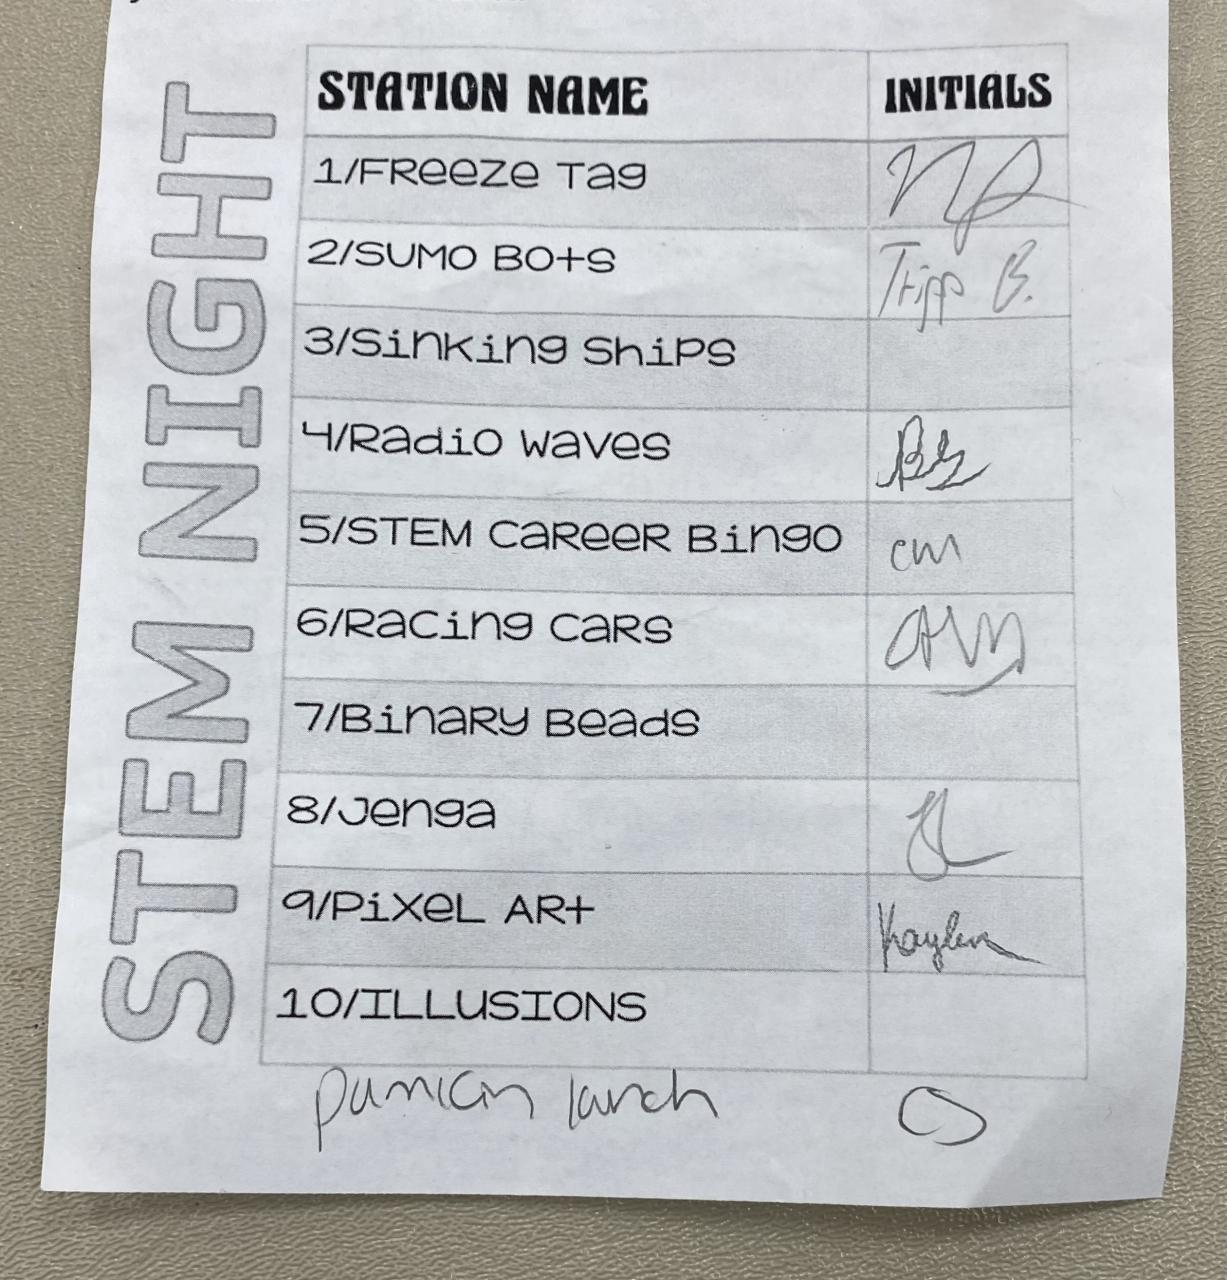 STEM NIGHT
STATION NAME INITIALS
1/FReeze Tag
2/SUMO BOtS Tripp B.
3/Sinking ShiPS
4/Radio waves
5/STEM CaReeR Bingo cm
6/Racing caRS
7/BinaRy Beads
8/Jenga
9/PiXeL ARt Kaylen
10/ILLUSIONS